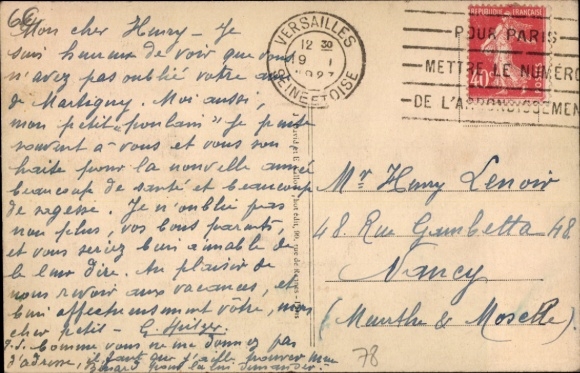 66
Mon cher Henry - Je
suis heureux de voir que vous
n'avez pas oublié votre ami
de Martigny. Moi aussi,
mon petit "poulain" Je pense
souvent à vous et vous sou
haite pour la nouvelle année
beaucoup de santé et beaucoup
de sagesse. Je n'oublie pas
non plus, vos bons parents,
et vous seriez bien aimable de
le leur dire. Au plaisir de
vous revoir aux vacances, et
bien affectueusement vôtre, mon
cher petit - G.
P.S. Comme vous ne me donnez pas
d'adresse, il faut que j'aille trouver Mme
pour la lui demander.
VERSAILLES
12 30
9 I
SEINE ET OISE
REPUBLIQUE FRANÇAISE
40
POUR PARIS
METTRE LE NUMÉRO
DE L'ARRONDISSEMENT
Mr Henry Lenoir
48. Rue Gambetta 48.
Nancy
(Meurthe & Moselle).
78